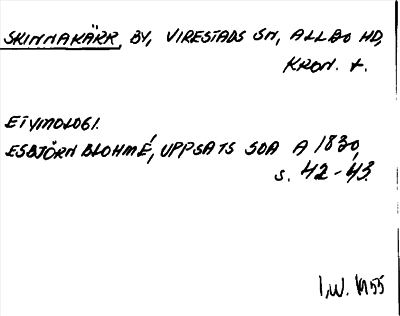 SKINNAKÄRR, BY, VIRESTADS SN, ALLBO HD,
KRON. L.
ETYMOLOGI.
ESBJÖRN BLOHMÉ, UPPSATS SOA A 1830,
s. 42-43.
I.W. 1955